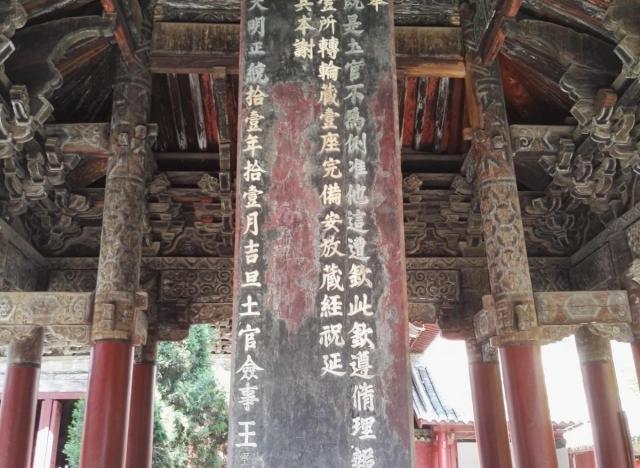 奉
既是土官不為例准他這遭欽此欽遵脩理報
壹所轉輪藏壹座完備安放藏經祝延
具本謝
大明正統拾壹年拾壹月吉旦土官僉事王